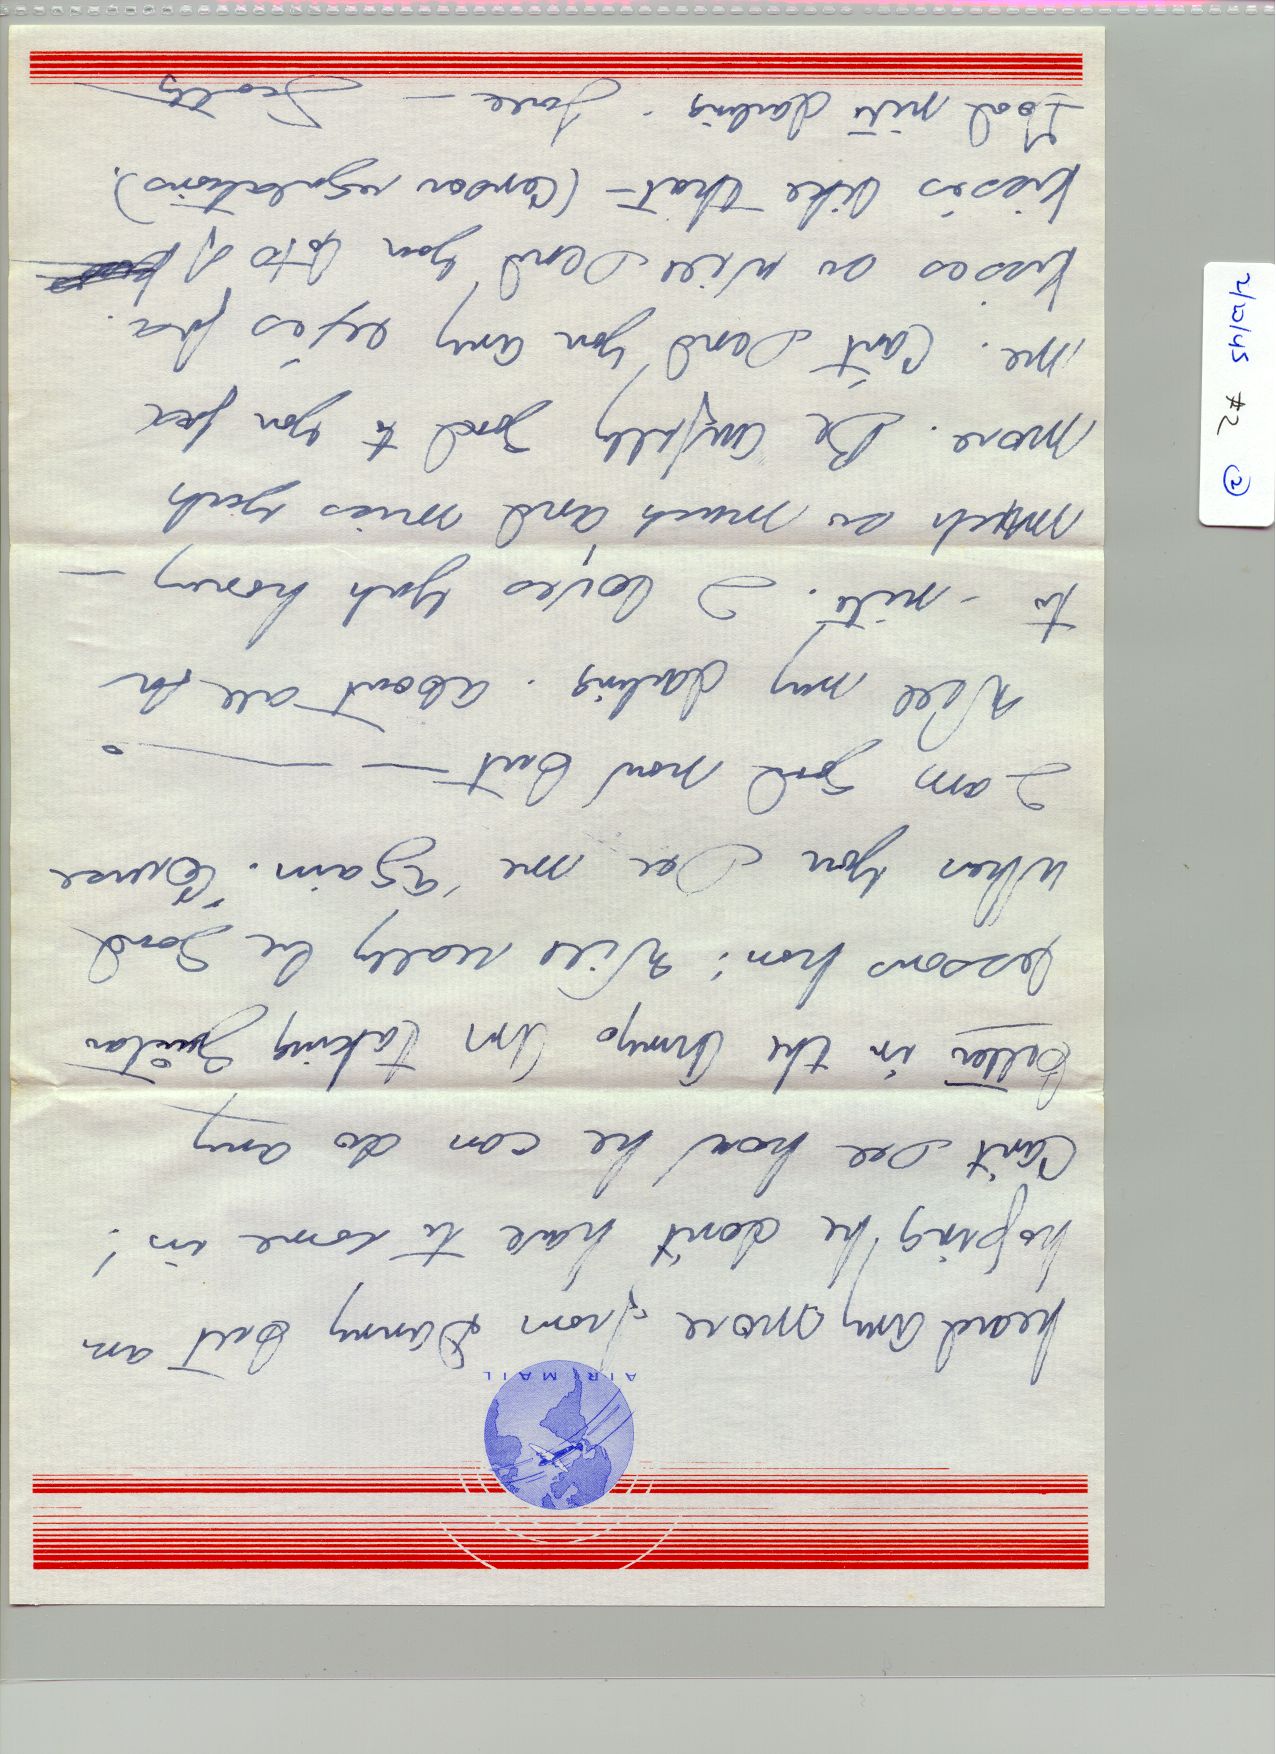 AIR MAIL
heard any more from Danny but am
hoping he don't have to come in!
Can't see how he can do any
better in the Army. Am taking guitar
lessons hon! Will really be good
when you see me again. Course
I am good now but — — — .
Well my darling. about all for
to-nite. I loves yah honey —
much as much and miss yah
more. Be awfully good to you for
me. Can't send you any x's for
kisses so will send you lots of
kisses like that — (Censor regulations).
Good nite darling. Love — Scotty
2/10/45 #2 2